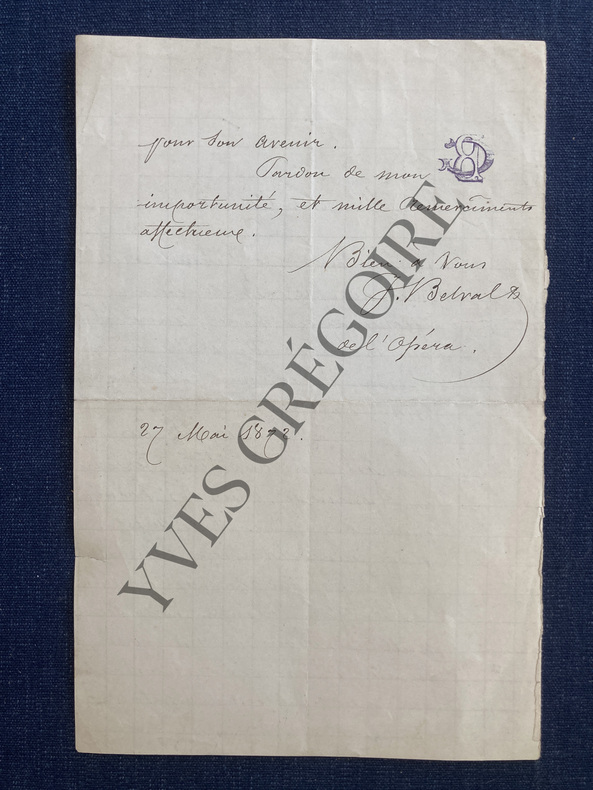 pour son avenir.
Pardon de mon
importunité, et mille remerciments
affectueux.
Bien à Vous
J. Belval
de l'Opéra.
27 Mai 1872.
YVES GRÉGOIRE